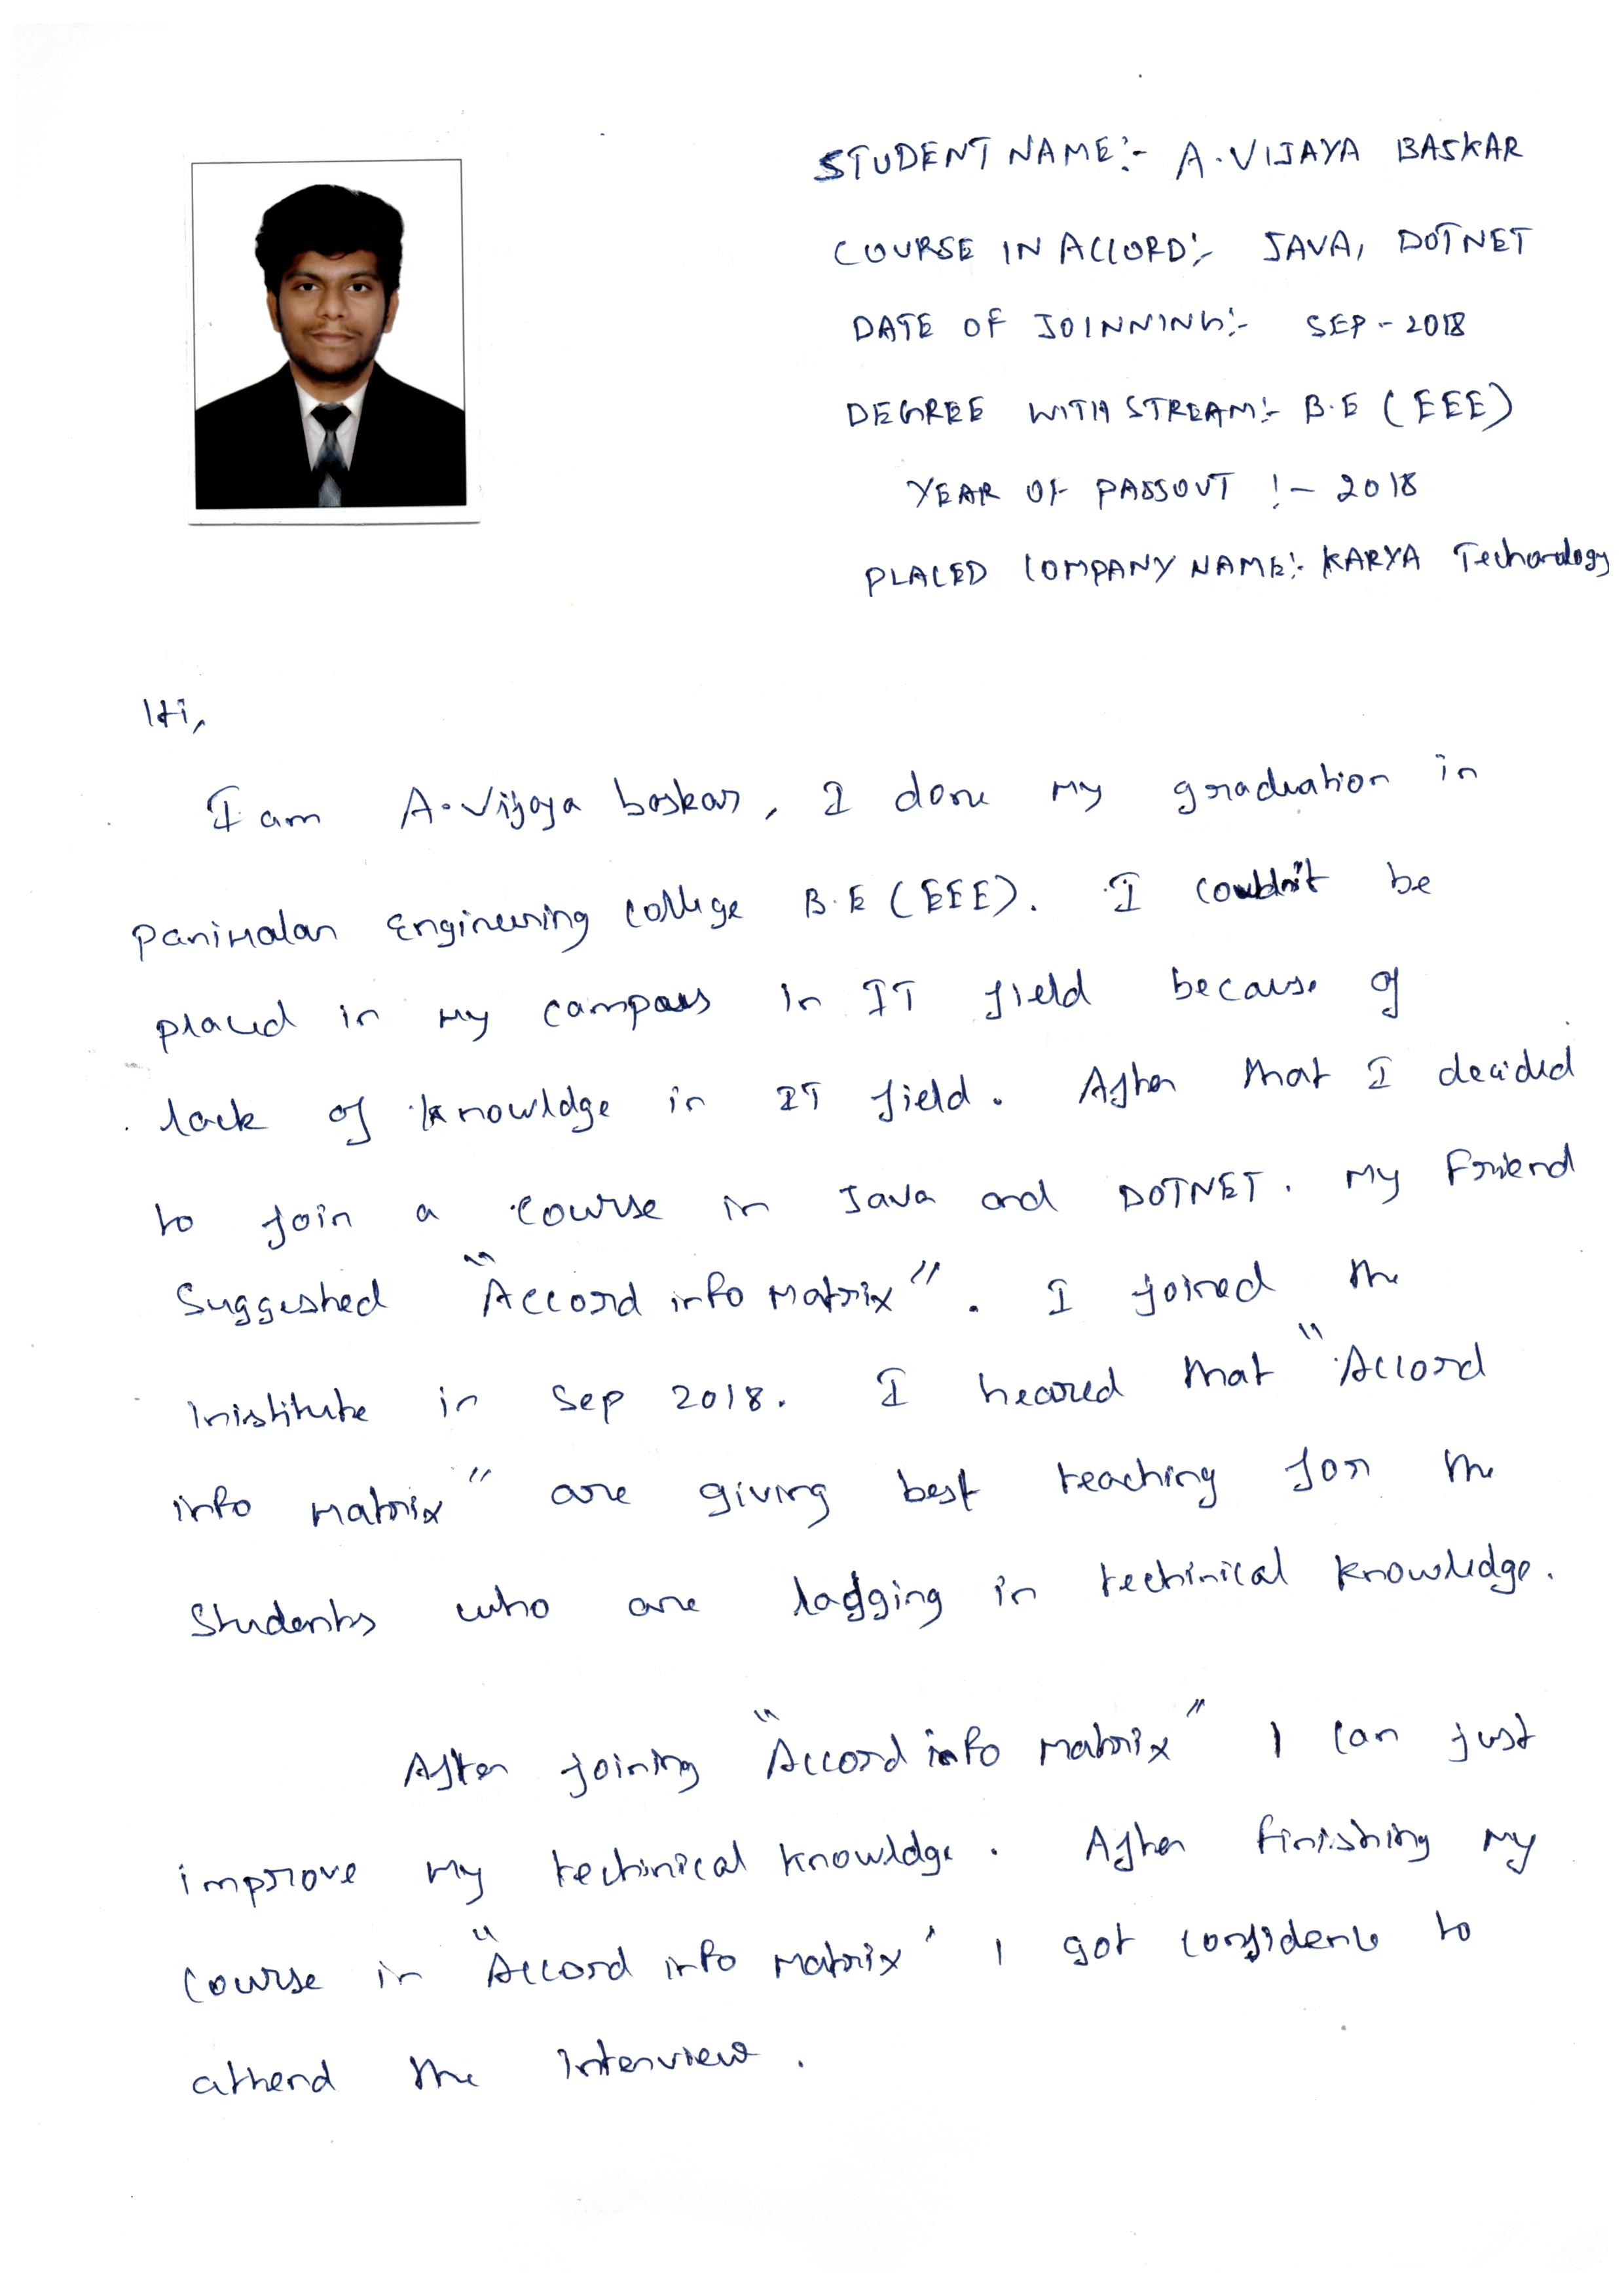 STUDENT NAME:- A.VIJAYA BASKAR
COURSE IN ACCORD:- JAVA, DOTNET
DATE OF JOINNING:- SEP-2018
DEGREE WITH STREAM:- B.E (EEE)
YEAR OF PASSOUT :- 2018
PLACED COMPANY NAME:- KARYA Technology
Hi,
I am A.Vijaya baskar, I done my graduation in
Panimalar Engineering college B.E (EEE). I couldn't be
placed in my campus in IT field because of
lack of knowldge in IT field. After that I decided
to join a course in Java and DOTNET. My Friend
Suggested "Accord info Matrix". I joined the
Inistitute in Sep 2018. I heared that "Accord
info Matrix" are giving best teaching for the
Students who are lagging in techinical knowledge.
After joining "Accord info Matrix" I can just
improve my techinical knowldge. After finishing my
course in "Accord info Matrix" I got confidence to
attend the Interview.